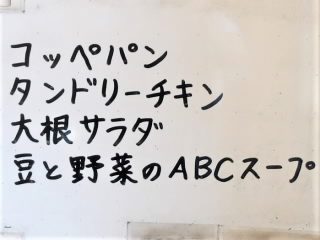 コッペパン
タンドリーチキン
大根サラダ
豆と野菜のABCスープ